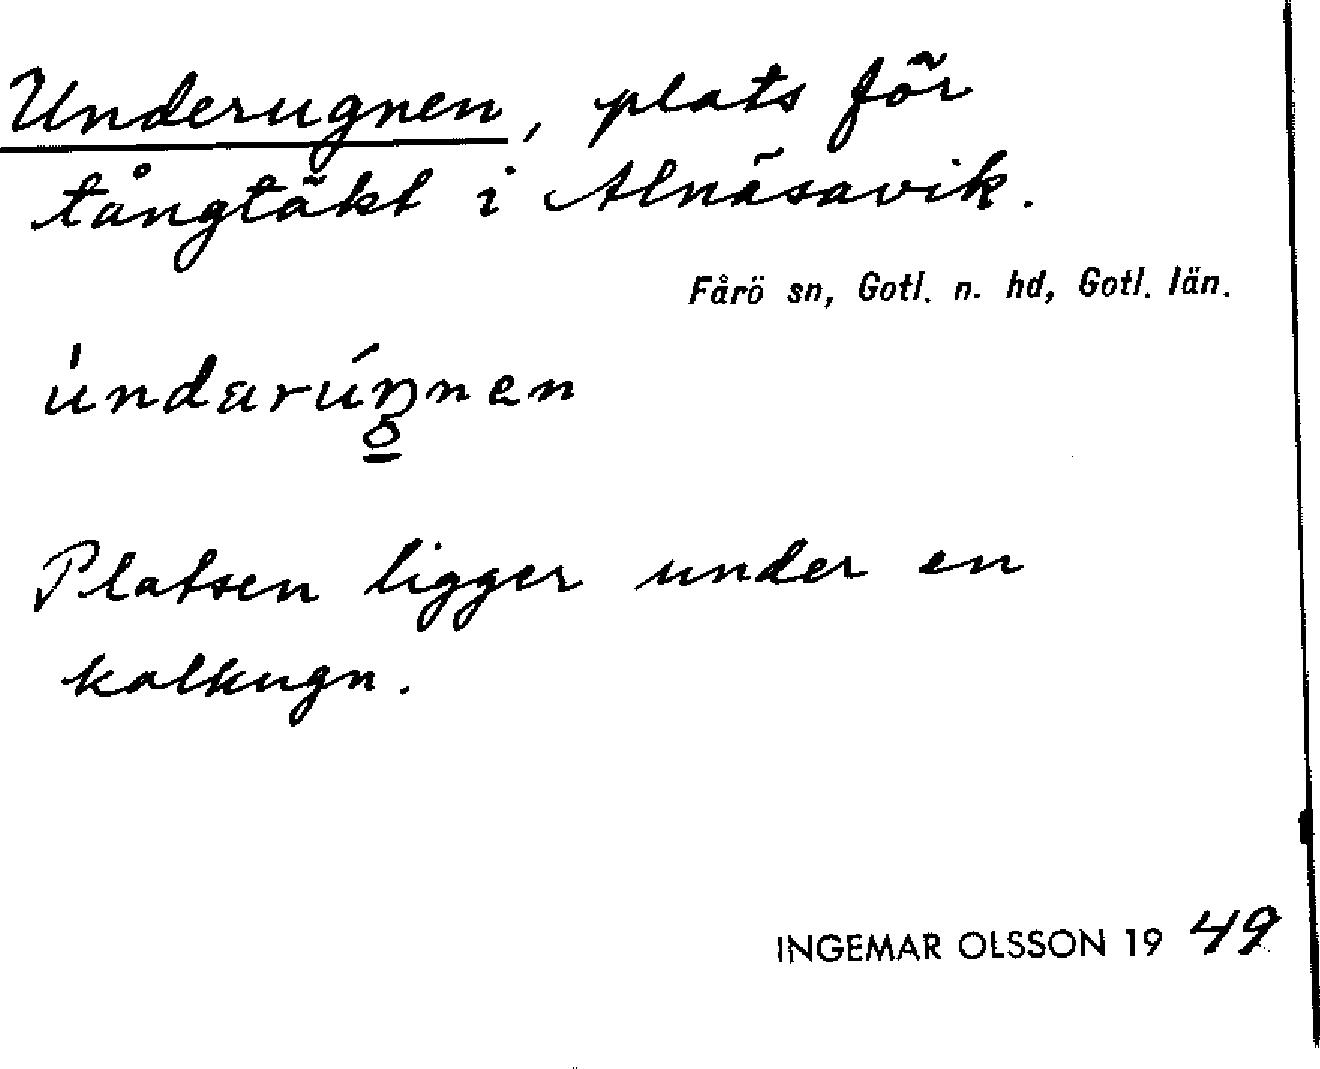 Underugnen, plats för
tångtäkt i Alnäsavik.
Fårö sn, Gotl. n. hd, Gotl. län.
Platsen ligger under en
kalkugn.
INGEMAR OLSSON 19 49